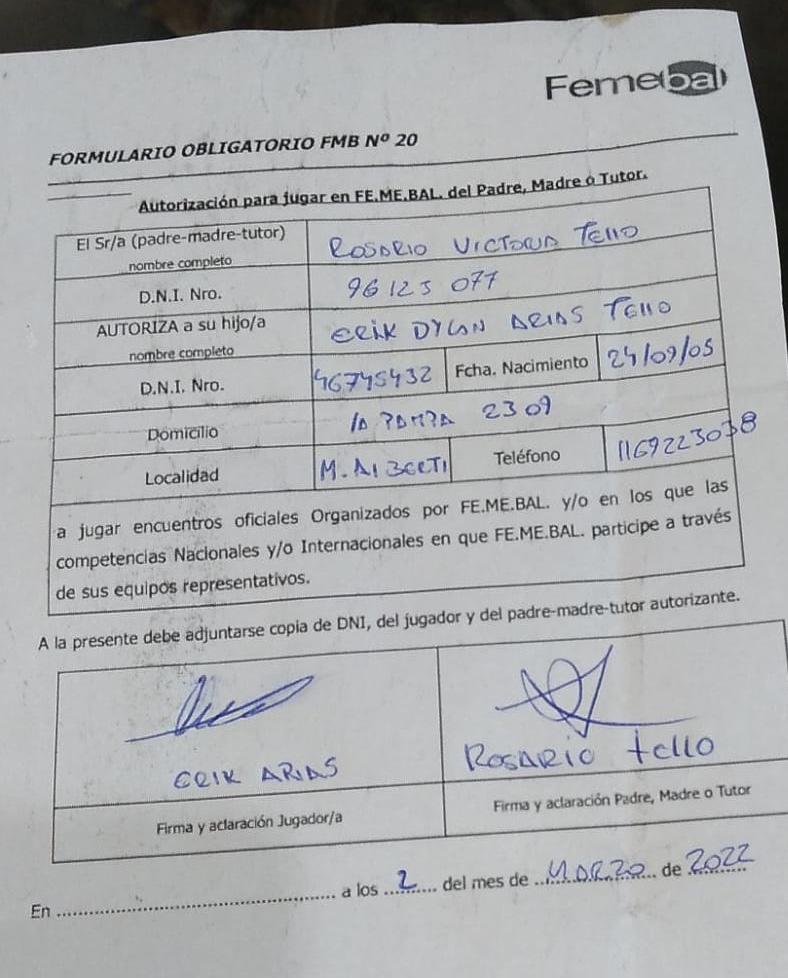 Femebal
FORMULARIO OBLIGATORIO FMB Nº 20
Autorización para jugar en FE.ME.BAL. del Padre, Madre o Tutor.
El Sr/a (padre-madre-tutor)
nombre completo
ROSARIO VICTORIA TELLO
D.N.I. Nro.
96 123 077
AUTORIZA a su hijo/a
nombre completo
ERIK DYLAN ARIAS TELLO
D.N.I. Nro.
46745432
Fcha. Nacimiento
24/09/05
Domicilio
LA PAMPA 2309
Localidad
M. ALBERTI
Teléfono
1169223038
a jugar encuentros oficiales Organizados por FE.ME.BAL. y/o en los que las
competencias Nacionales y/o Internacionales en que FE.ME.BAL. participe a través
de sus equipos representativos.
A la presente debe adjuntarse copia de DNI, del jugador y del padre-madre-tutor autorizante.
ERIK ARIAS
ROSARIO tello
Firma y aclaración Jugador/a
Firma y aclaración Padre, Madre o Tutor
En ................................................ a los ..2.. del mes de ..MARZO.. de 2022